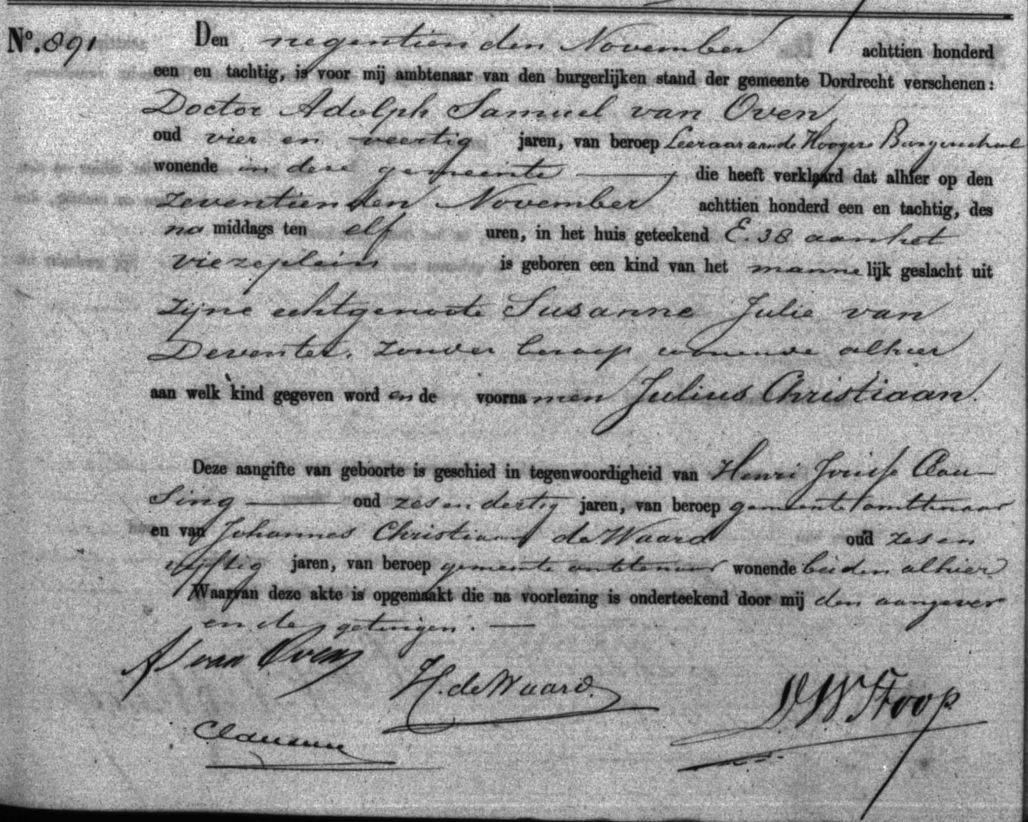 No. 891 Den negentienden November achttien honderd
een en tachtig, is voor mij ambtenaar van den burgerlijken stand der gemeente Dordrecht verschenen:
Doctor Adolph Samuel van Oven
oud vier en veertig jaren, van beroep Leeraar aan de Hoogere Burgerschool
wonende in deze gemeente die heeft verklaard dat alhier op den
zeventienden November achttien honderd een en tachtig, des
na middags ten elf uren, in het huis geteekend E. 38 aan het
vriezeplein is geboren een kind van het manne lijk geslacht uit
zijne echtgenoote Susanne Julie van
Deventer, zonder beroep wonende alhier
aan welk kind gegeven word en de voorna men Julius Christiaan.
Deze aangifte van geboorte is geschied in tegenwoordigheid van Henri
oud zesendertig jaren, van beroep gemeente ambtenaar
en van Johannes Christiaan de Waard oud zes en
vijftig jaren, van beroep gemeente ambtenaar wonende beiden alhier
Waarvan deze akte is opgemaakt die na voorlezing is onderteekend door mij den aangever
en de getuigen.
A S van Oven
H. de Waard.
W Stoop